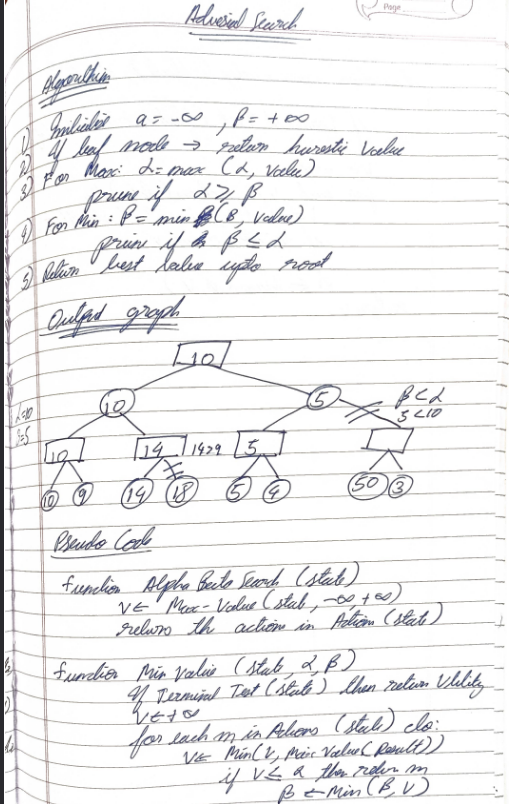 Page
Adversial Search
Algorithim
1) Initialise a = -∞, β = +∞
2) If leaf node → return hurestic value
3) For Max: α = max (α, value)
prune if α ≥ β
4) For Min : β = min (β, value)
prune if β ≤ α
5) Return best value upto root
Output graph
10
10 5 β < α
5 < 10
α=10
β=5
10 14 14>9 5
10 9 14 18 5 4 50 3
Pseudo Code
function Alpha Beta Search (state)
V ← Max-Value (state, -∞, +∞)
return the action in Action (state)
function Min Value (state, α, β)
If Terminal Test (state) then return Utility
V ← +∞
for each m in Actions (state) do:
V ← Min (V, Max Value (Result))
if V ≤ α then return m
β ← Min (β, V)